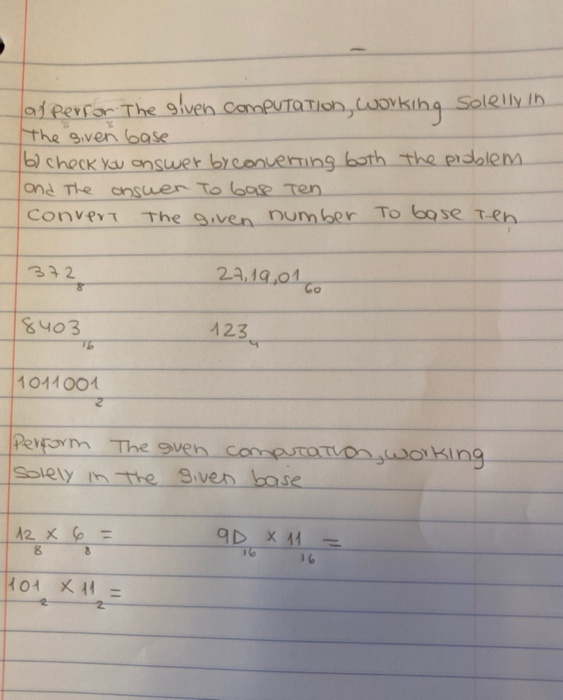 a) perfor The given computation, working solelly in
the given base
b) check you answer by converting both the problem
and The answer To base Ten
Convert The given number To base Ten
372₈ 27,19,01₆₀
8403₁₆ 123₄
1011001₂
Perform The given computation, working
solely in the given base
12₈ × 6₈ = 9D₁₆ × 11₁₆ =
101₂ × 11₂ =